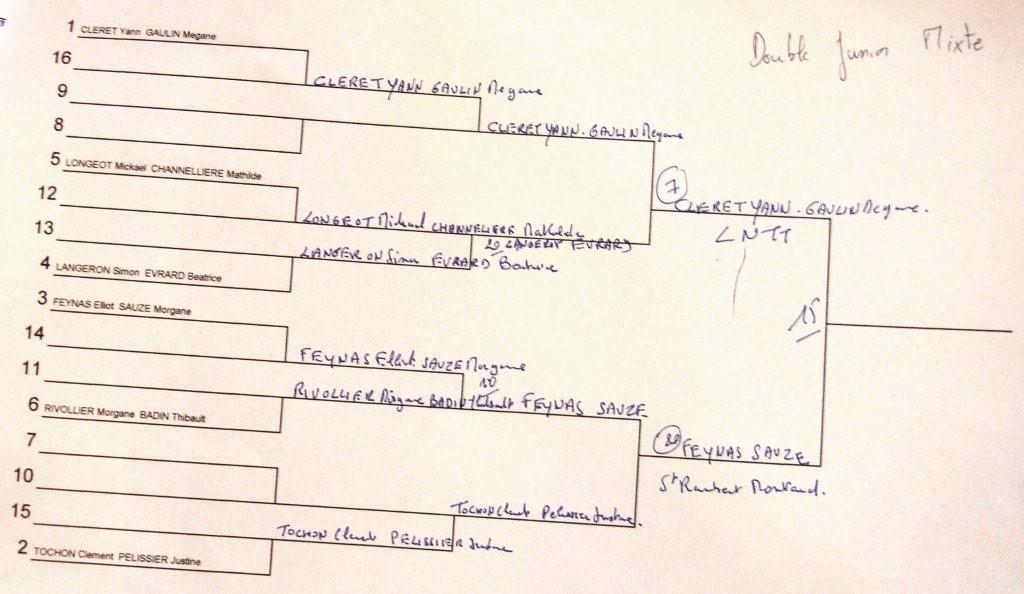 Double Junior Mixte
1 CLERET Yann GAULIN Megane
16
CLERET YANN GAULIN Megane
9
CLERET YANN. GAULIN Megane
8
5 LONGEOT Mickael CHANNELLIERE Mathilde
7
CLERET YANN. GAULIN Megane.
12
LONGEOT Mickael CHANNELIERE Mathilde
LNTT
20 LANGERON EVRARD
13
LANGERON Simon EVRARD Beatrice
4 LANGERON Simon EVRARD Beatrice
3 FEYNAS Elliot SAUZE Morgane
15
14
FEYNAS Elliot SAUZE Morgane
11
10
RIVOLLIER Morgane BADIN Thibault FEYNAS SAUZE
6 RIVOLLIER Morgane BADIN Thibault
7
FEYNAS SAUZE
10
St Rambert Montrand.
TOCHON Clement PELISSIER Justine.
15
TOCHON Clement PELISSIER Justine
2 TOCHON Clement PELISSIER Justine